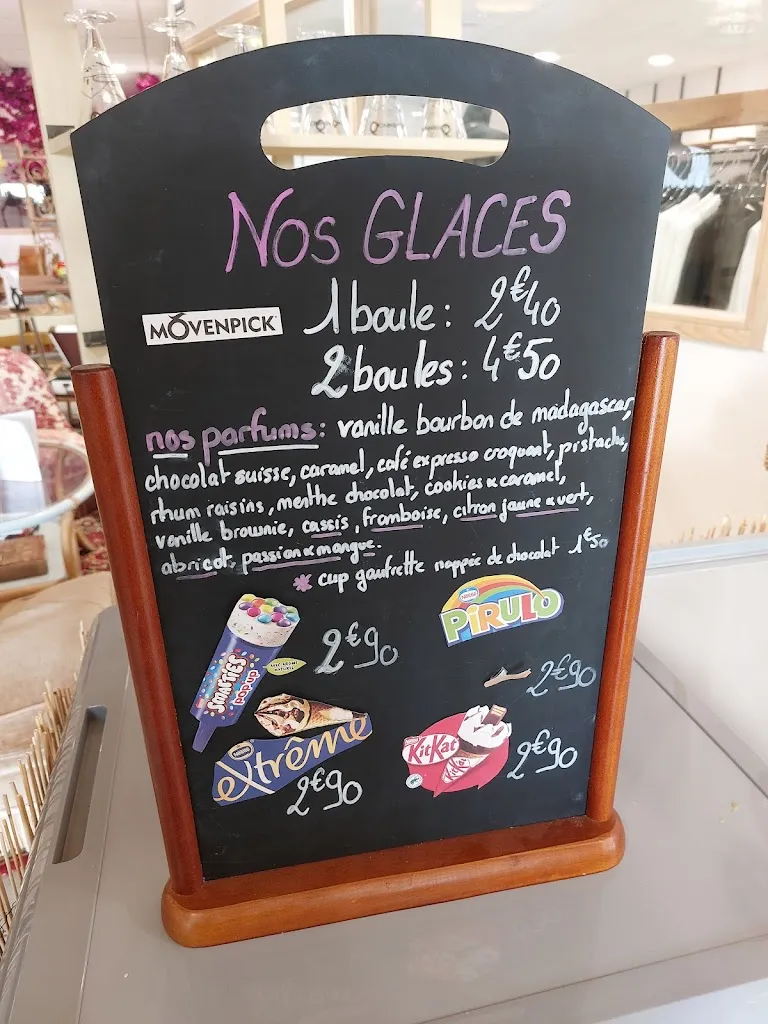 Nos GLACES
MÖVENPICK
1 boule : 2€40
2 boules : 4€50
nos parfums : vanille bourbon de madagascar,
chocolat suisse, caramel, café expresso croquant, pistache,
rhum raisins, menthe chocolat, cookies & caramel,
vanille brownie, cassis, framboise, citron jaune & vert,
abricot, passion & mangue.
* cup gaufrette nappée de chocolat 1€50
Nestlé
PIRULO
SMARTIES
pop up
2€90
2€90
Nestlé
extrême
2€90
KitKat
KitKat
2€90